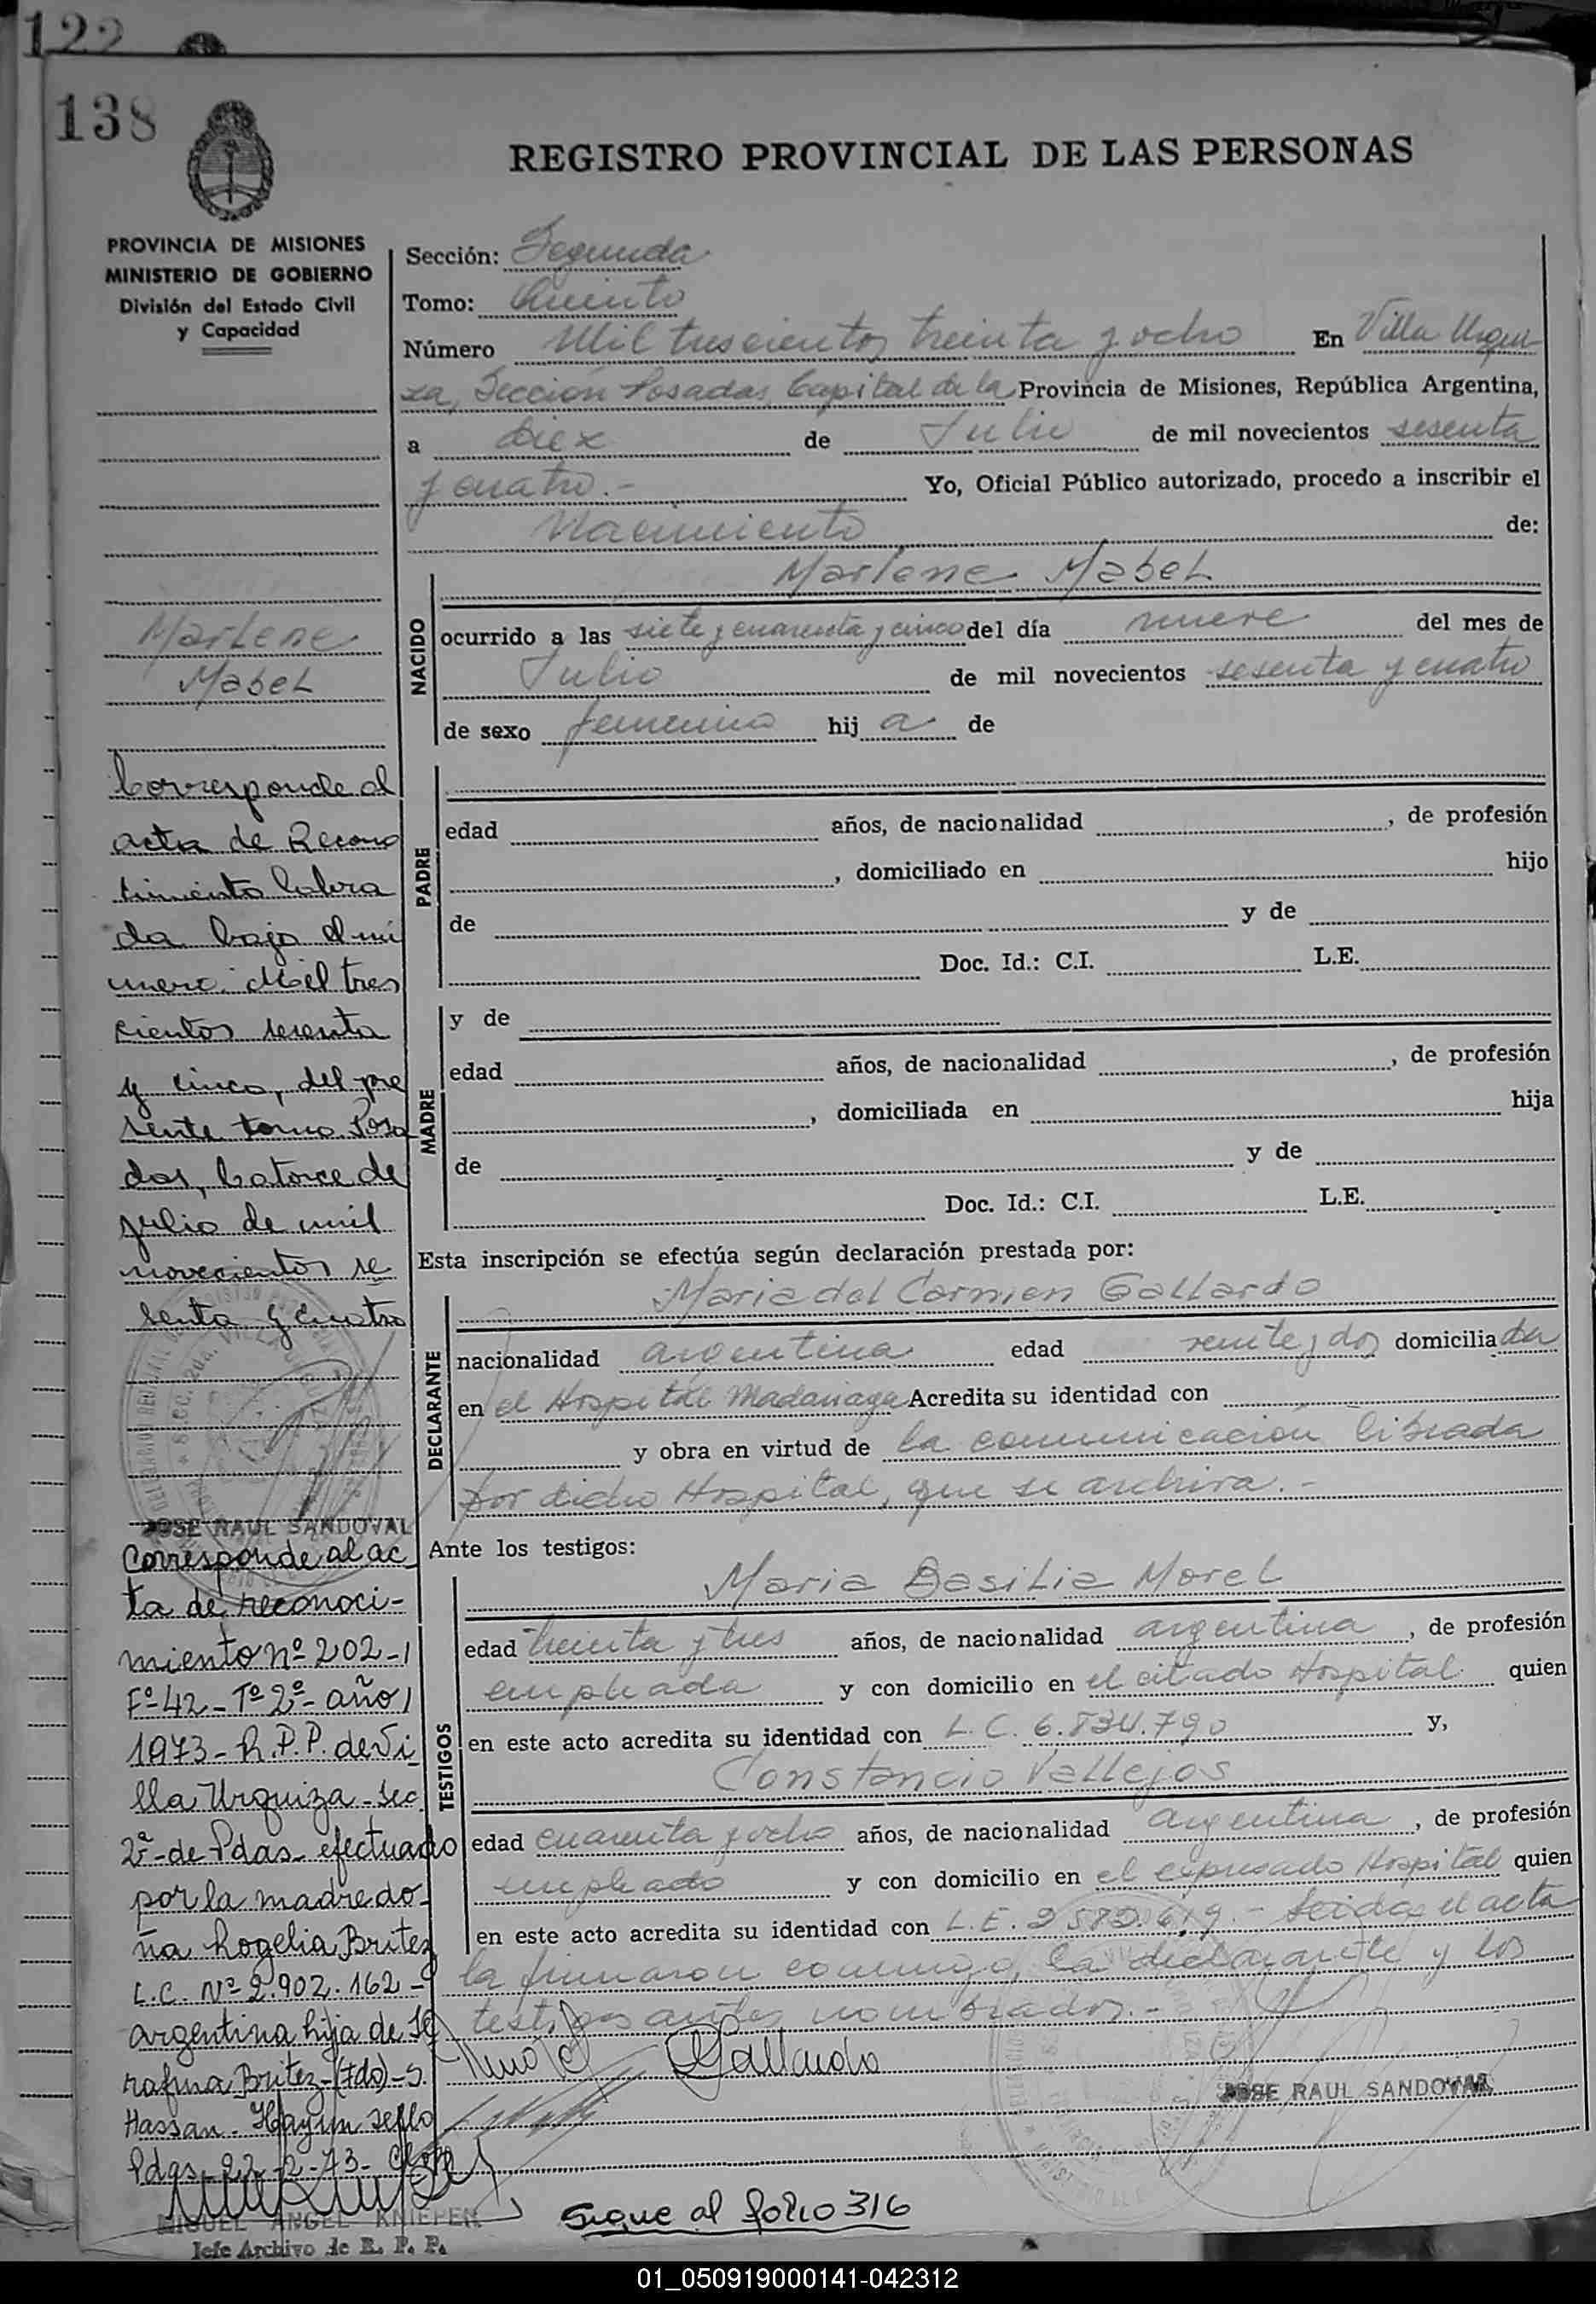 122
138
REGISTRO PROVINCIAL DE LAS PERSONAS
PROVINCIA DE MISIONES
MINISTERIO DE GOBIERNO
División del Estado Civil
y Capacidad
Marlene
Mabel
Corresponde al
acta de Recono
cimiento labra
da bajo el nú
mero: Mil tres
cientos sesenta
y cinco, del pre
sente tomo Posa
das, Catorce de
julio de mil
novecientos se
senta y cuatro
JOSE RAUL SANDOVAL
Corresponde al ac
ta de reconoci-
miento nº 202-
Fº 42 - Tº 2º - año
1973 - R.P.P. de Vi
lla Urquiza - Sec
2ª - de Pdas - efectuado
por la madre do-
ña Rogelia Britez
L.C. Nº 2.902.162 -
argentina hija de Se
rafina Britez - (Fdo) - S.
Hassan - Hay un sello
Pdas - 22-2-73-
MIGUEL ANGEL KNIEPER
Jefe Archivo de R. P. P.
Sección: Segunda
Tomo: Quinto
Número Mil trescientos treinta y ocho En Villa Urqui
za, Sección Posadas, Capital de la Provincia de Misiones, República Argentina,
a diez de Julio de mil novecientos sesenta
y cuatro.- Yo, Oficial Público autorizado, procedo a inscribir el
Nacimiento de:
Marlene Mabel
NACIDO
ocurrido a las siete y cuarenta y cinco del día nueve del mes de
Julio de mil novecientos sesenta y cuatro
de sexo femenino hij a de
PADRE
edad años, de nacionalidad , de profesión
, domiciliado en hijo
de y de
Doc. Id.: C.I. L.E.
MADRE
y de
edad años, de nacionalidad , de profesión
, domiciliada en hija
de y de
Doc. Id.: C.I. L.E.
Esta inscripción se efectúa según declaración prestada por:
Maria del Carmen Gallardo
DECLARANTE
nacionalidad argentina edad veinte y dos domicilia da
en el Hospital Madariaga Acredita su identidad con
y obra en virtud de la comunicación librada
por dicho Hospital, que se archiva.-
Ante los testigos:
Maria Basilia Morel
TESTIGOS
edad treinta y tres años, de nacionalidad argentina , de profesión
empleada y con domicilio en el citado Hospital quien
en este acto acredita su identidad con L.C. 6.834.790 y,
Constancio Vallejos
edad cuarenta y ocho años, de nacionalidad argentina , de profesión
empleado y con domicilio en el expresado Hospital quien
en este acto acredita su identidad con L.E. 2.582.619.- Leída el acta
la firmaron conmigo, la declarante y los
testigos antes nombrados.-
Gallardo
JOSE RAUL SANDOVAL
Sigue al folio 316
01_050919000141-042312